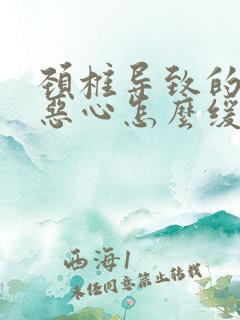 颈椎导致的
恶心怎麽缓
西海1
未经同意禁止转载